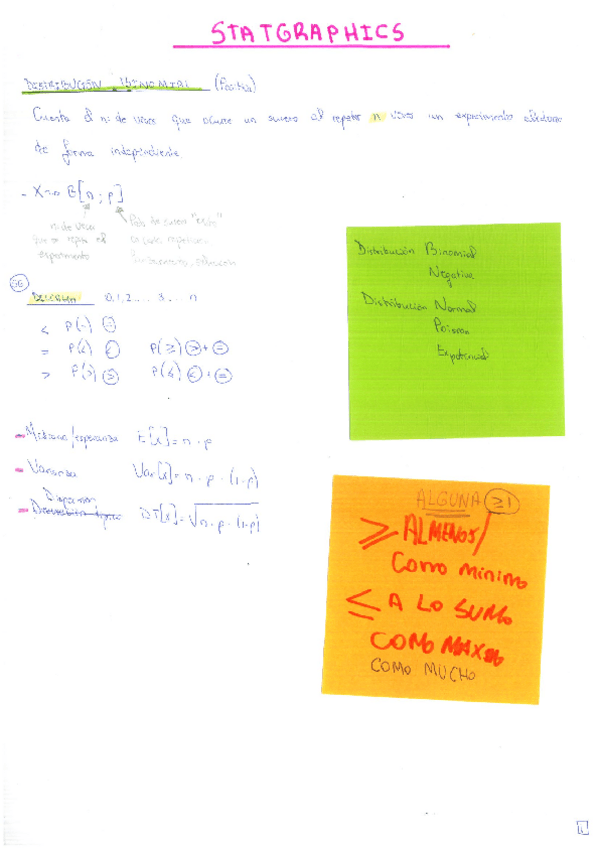 STATGRAPHICS
DISTRIBUCIÓN BINOMIAL (Positiva)
Cuenta el n: de veces que ocurre un suceso al repetir n veces un experimento aleatorio
de forma independiente
- X ~ B[n; p]
n: de veces
que se repite el
experimento
Prob. de suceso "éxito"
SG
0, 1, 2 .... 3 ... n
<
=
>
P(≥) > + =
Mediana/esperanza E[X] = n · p
Varianza Var[X] = n · p · (1-p)
Dispersion
DT[X] = √n · p · (1-p)
Distribución Binomial
Negative
Distribución Normal
Poisson
Expotencial
ALGUNA ≥1
≥ ALMENOS/
Como mínimo
≤ A LO SUMO
COMO MAXIMO
COMO MUCHO